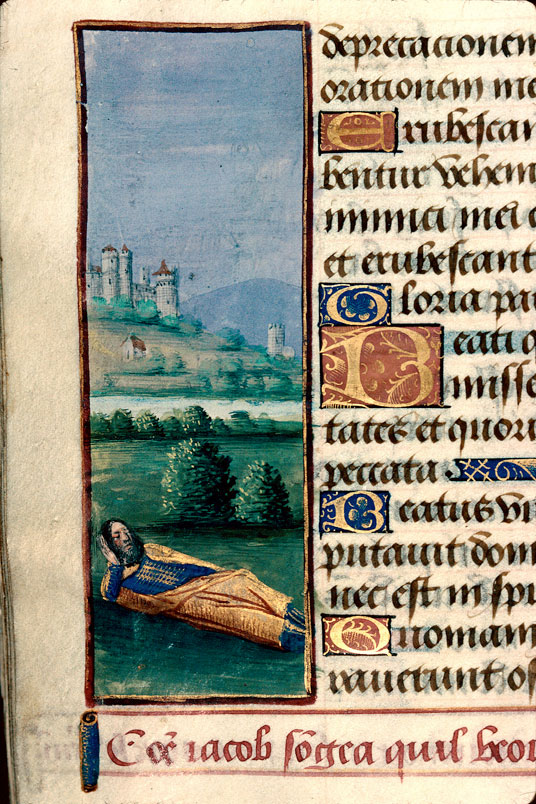 deprecacionem
orationem me
Erubescan
bentur vehem
inimici mei c
et erubescant
Gloria pa
Beati q
misse
tates et quoru
peccata
Beatus vi
putauit dom
nec est in spi
Quoniam
rauerunt os
Coe iacob sogea quil veoi